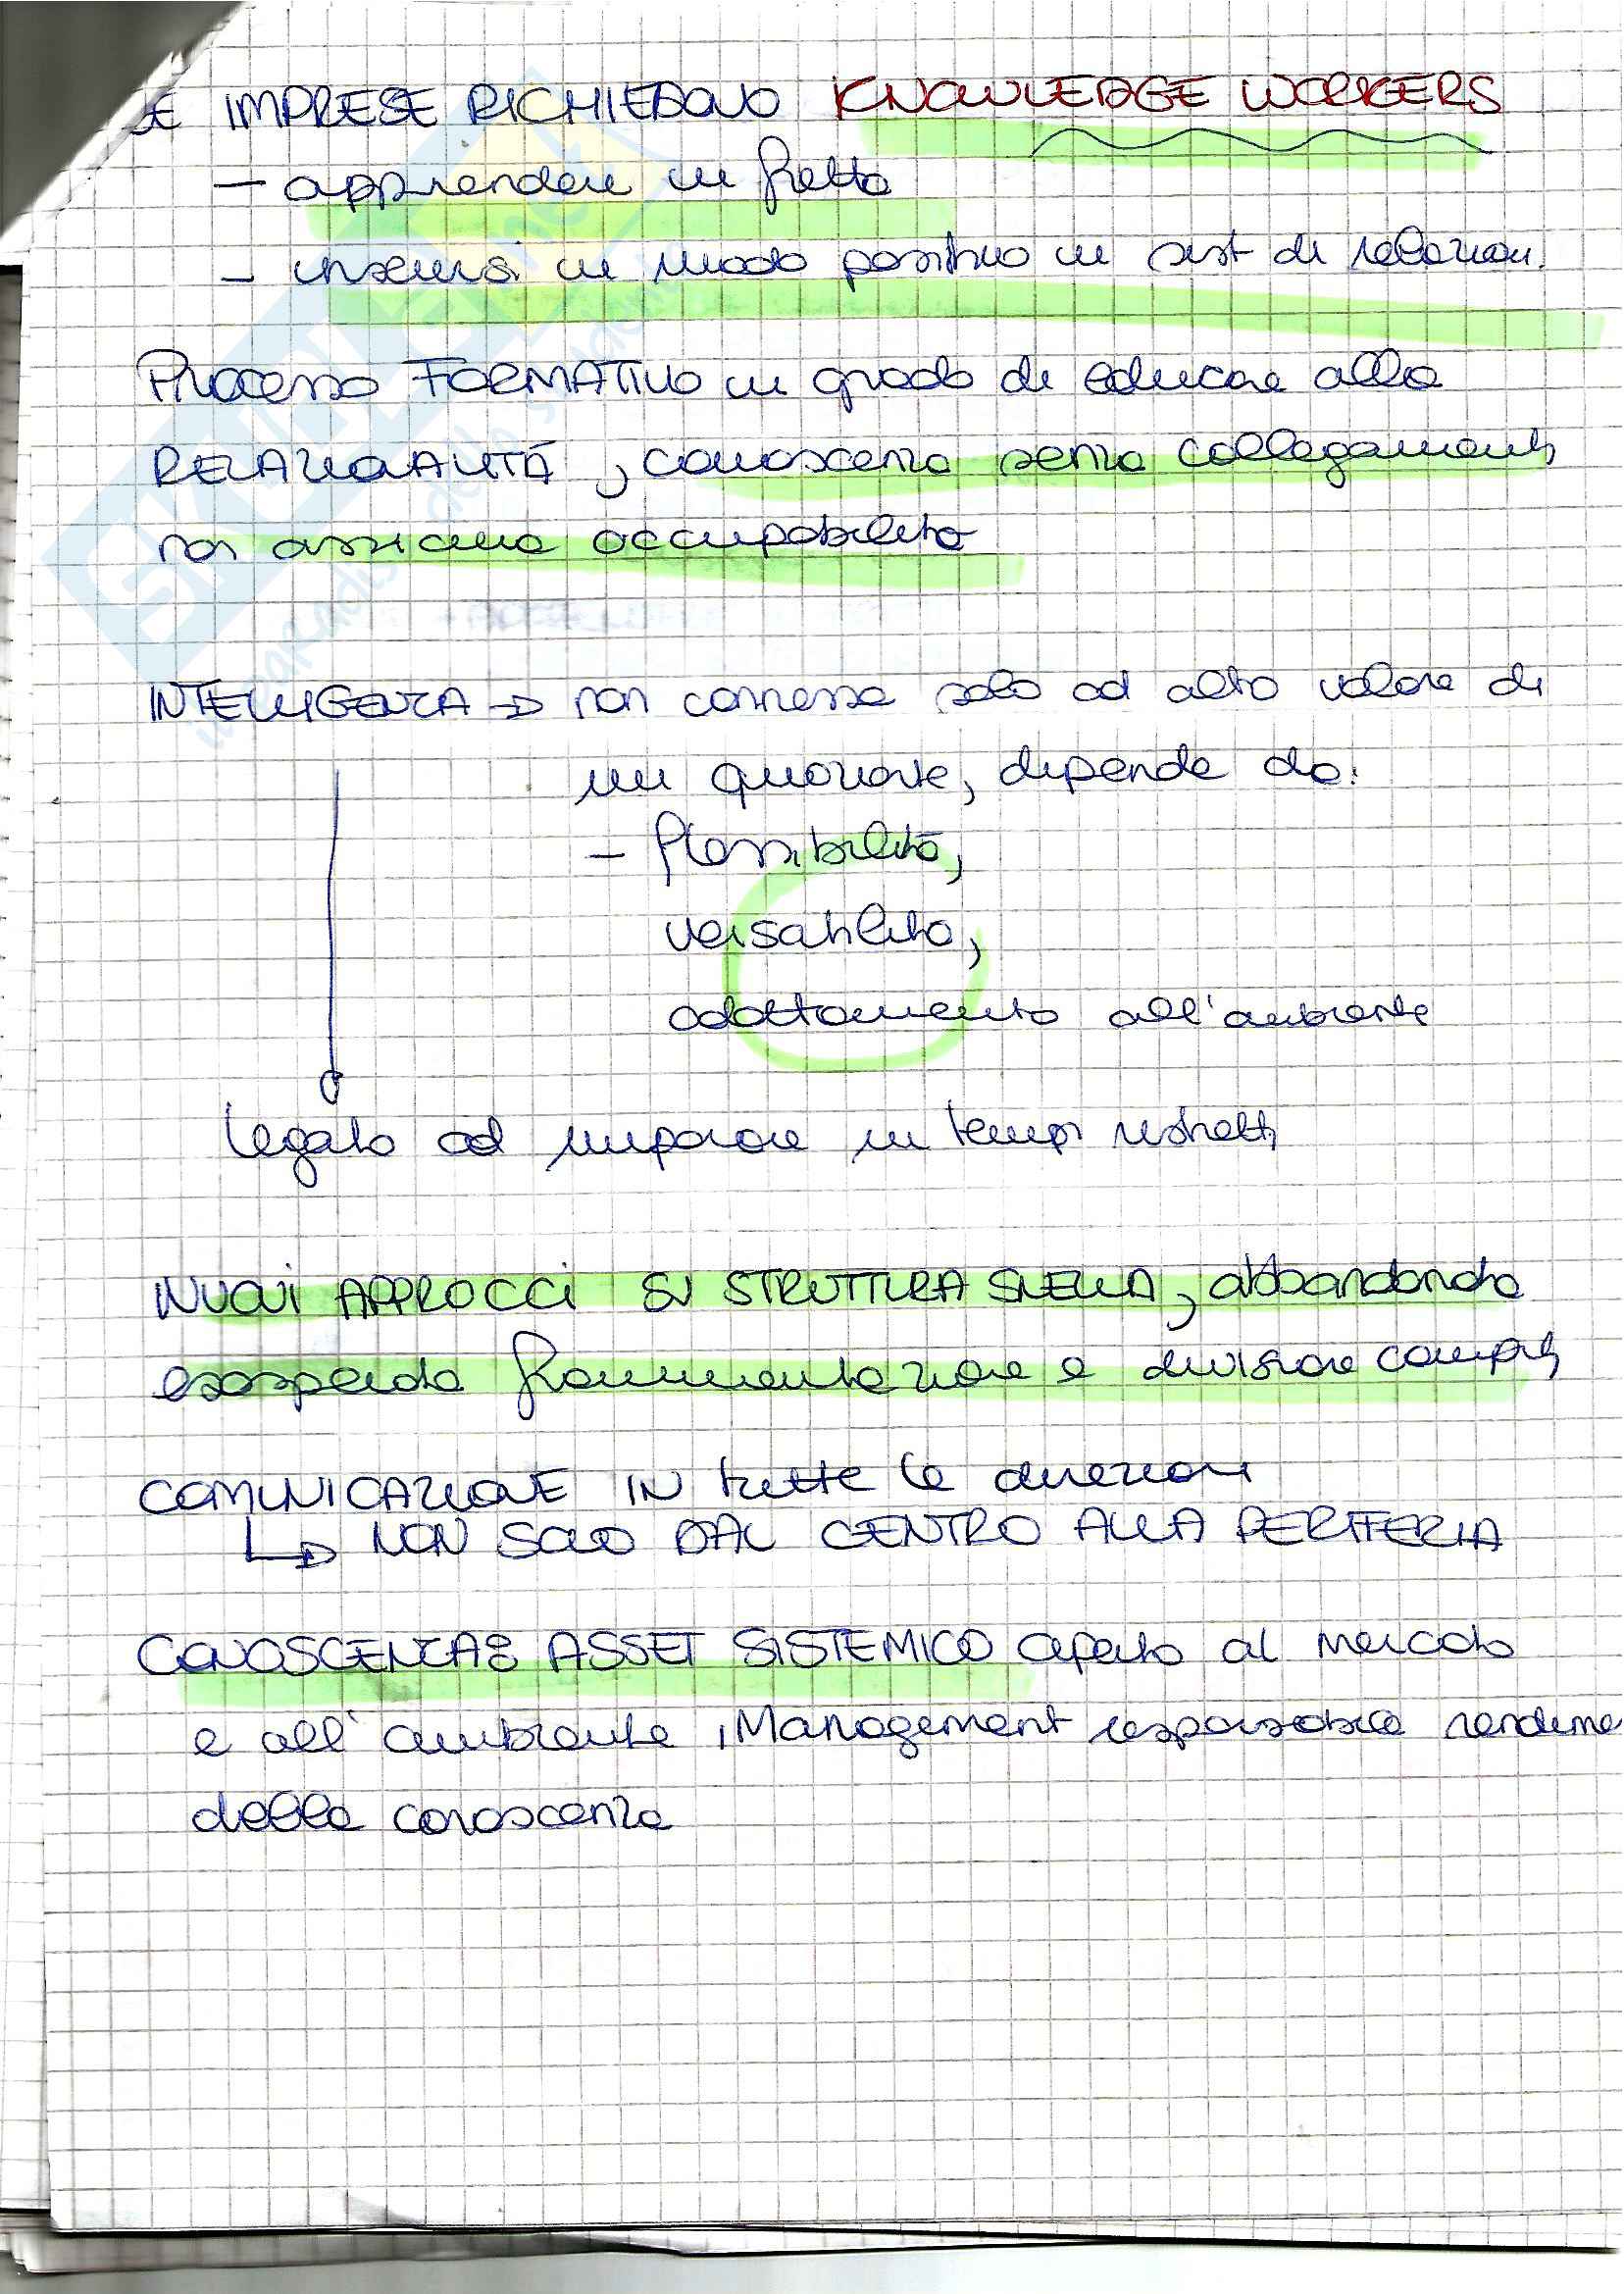 LE IMPRESE RICHIEDONO KNOWLEDGE WORKERS
– apprendere in fretta
– inserirsi in modo positivo in sist di relazioni.
Processo FORMATIVO in grado di educare alla
RELAZIONALITÀ, conoscenza senza collegamenti
non assicura occupabilità
INTELLIGENZA → non connessa solo ad alto valore di
un quoziente, dipende da:
– flessibilità,
versatilità,
adattamento all'ambiente
legato ad imparare in tempi ristretti
NUOVI APPROCCI SU STRUTTURA SNELLA, abbandonata
esasperata frammentazione e divisione compiti
COMUNICAZIONE IN tutte le direzioni
↳ NON SOLO DAL CENTRO ALLA PERIFERIA
CONOSCENZA È ASSET SISTEMICO aperto al mercato
e all'ambiente, Management responsabile rendime
della conoscenza
SKUOLA.net